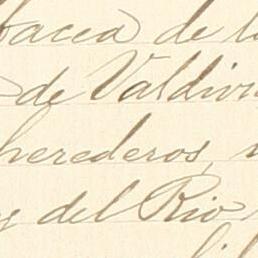 bacea de l
de Valdivi
herederos,
del Rio